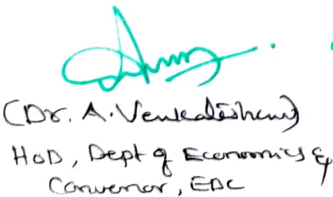 (Dr. A. Venkadeshan)
HoD, Dept of Economics &
Convenor, EDC